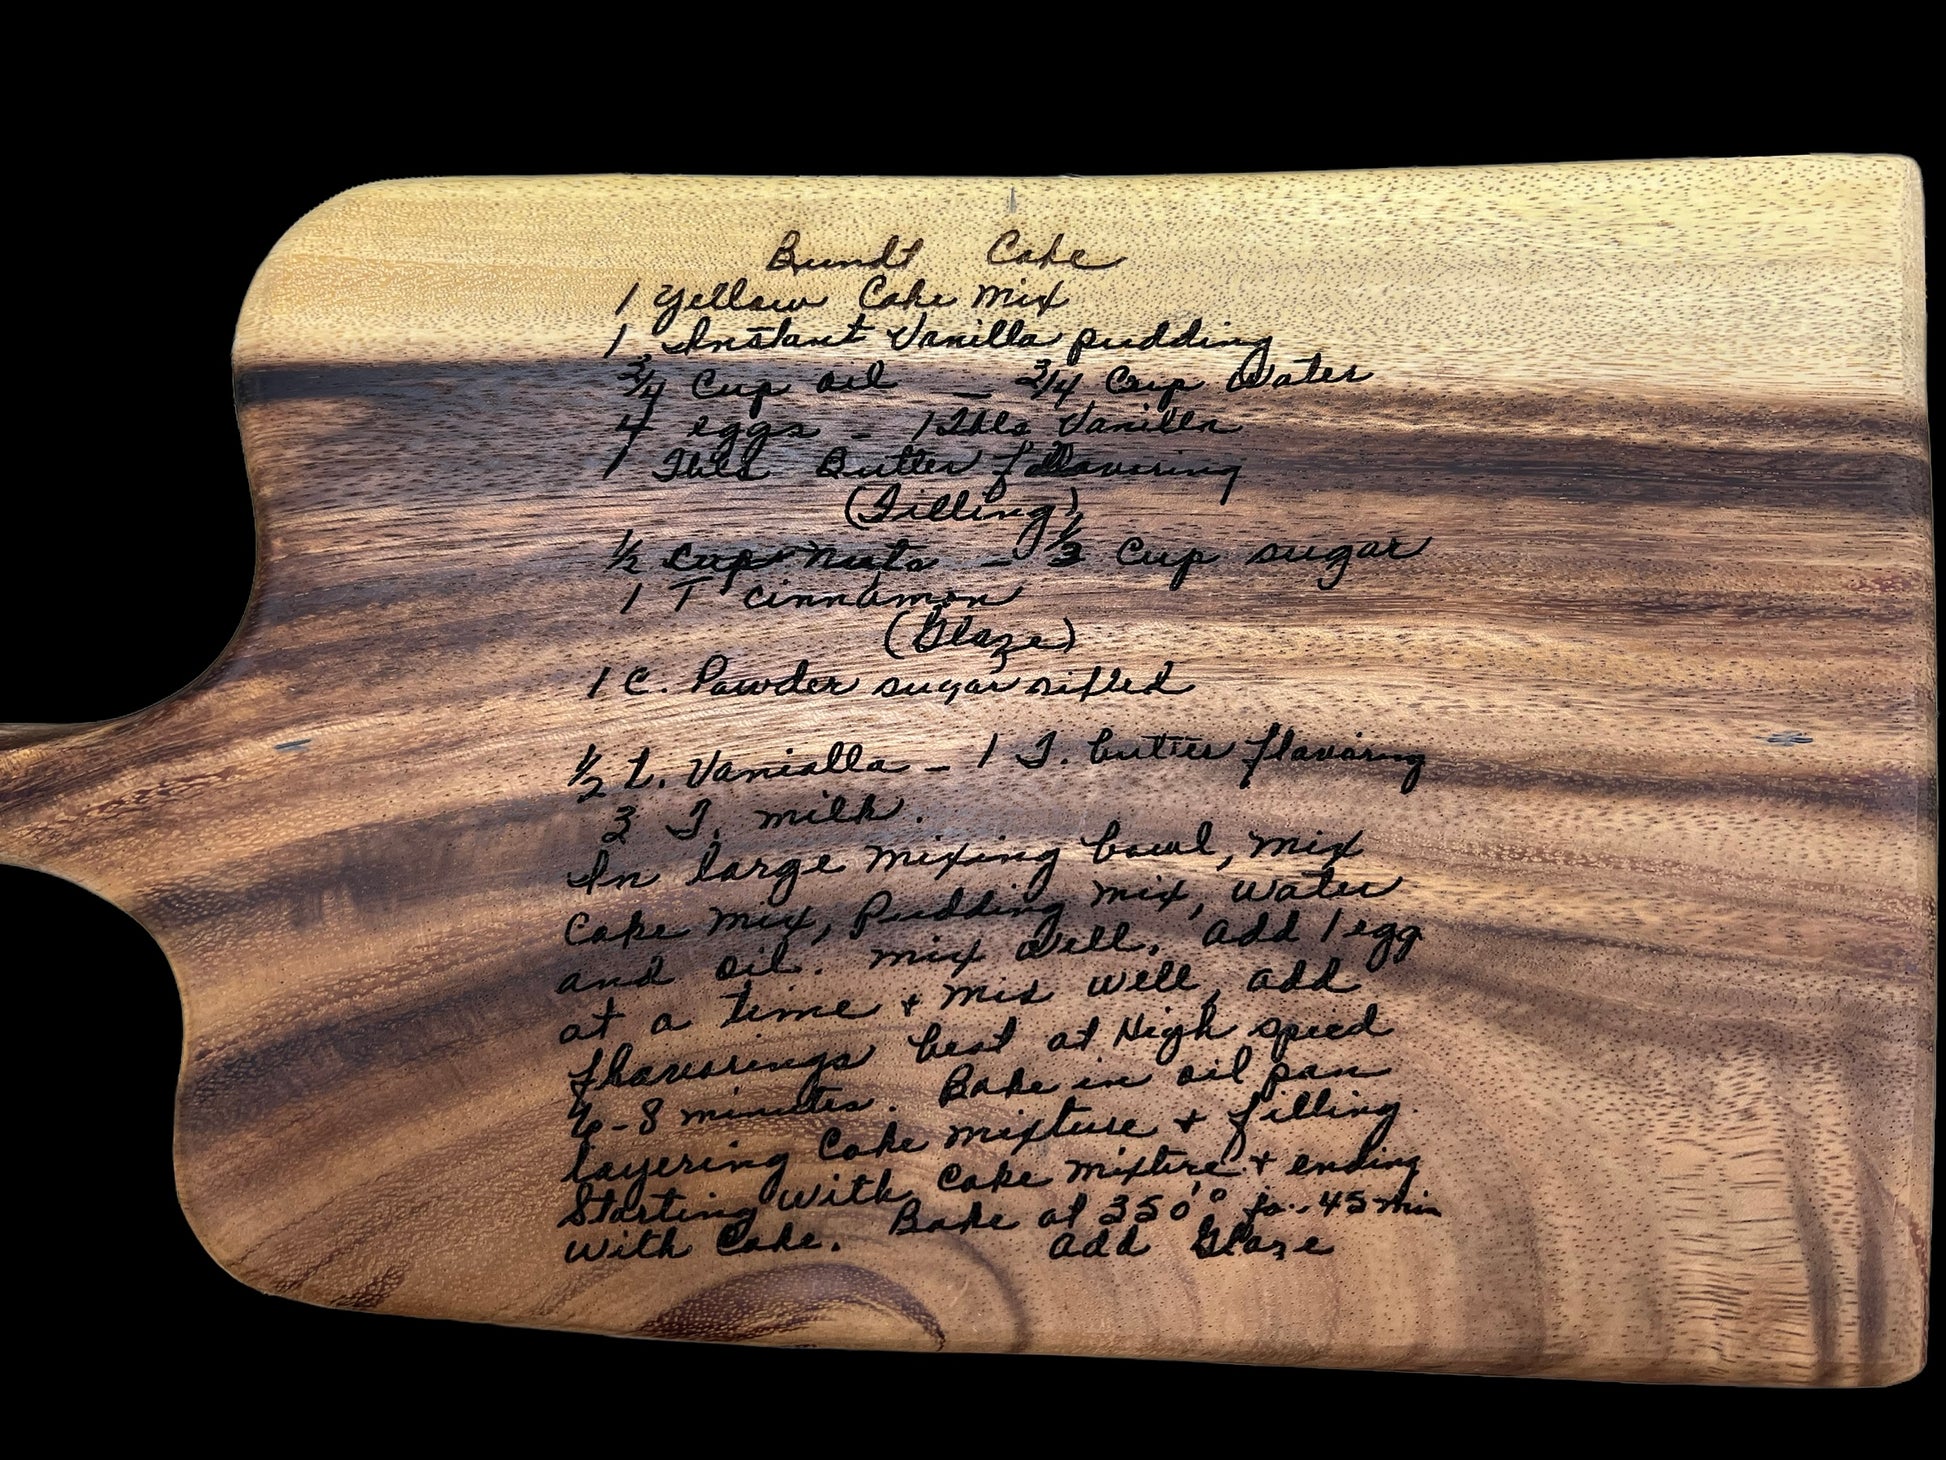 Bundt Cake
1 Yellow Cake Mix
1 Instant Vanilla pudding
3/4 Cup oil — 3/4 Cup Water
4 eggs - 1 Tbls Vanilla
1 Tbls Butter flavoring
(Filling)
1/2 Cup Nuts - 1/3 Cup sugar
1 T cinnamon
(Glaze)
1 C. Powder sugar sifted
1/2 t. Vanialla - 1 T. butter flavoring
3 T. milk.
In large mixing bowl, mix
Cake mix, Pudding mix, water
and oil. Mix well. add 1 egg
at a time + mix well, add
flavorings beat at High speed
6-8 minutes. Bake in oil pan
layering Cake mixture + filling.
Starting with Cake mixture + ending
with Cake. Bake at 350° for 45 min
add Glaze